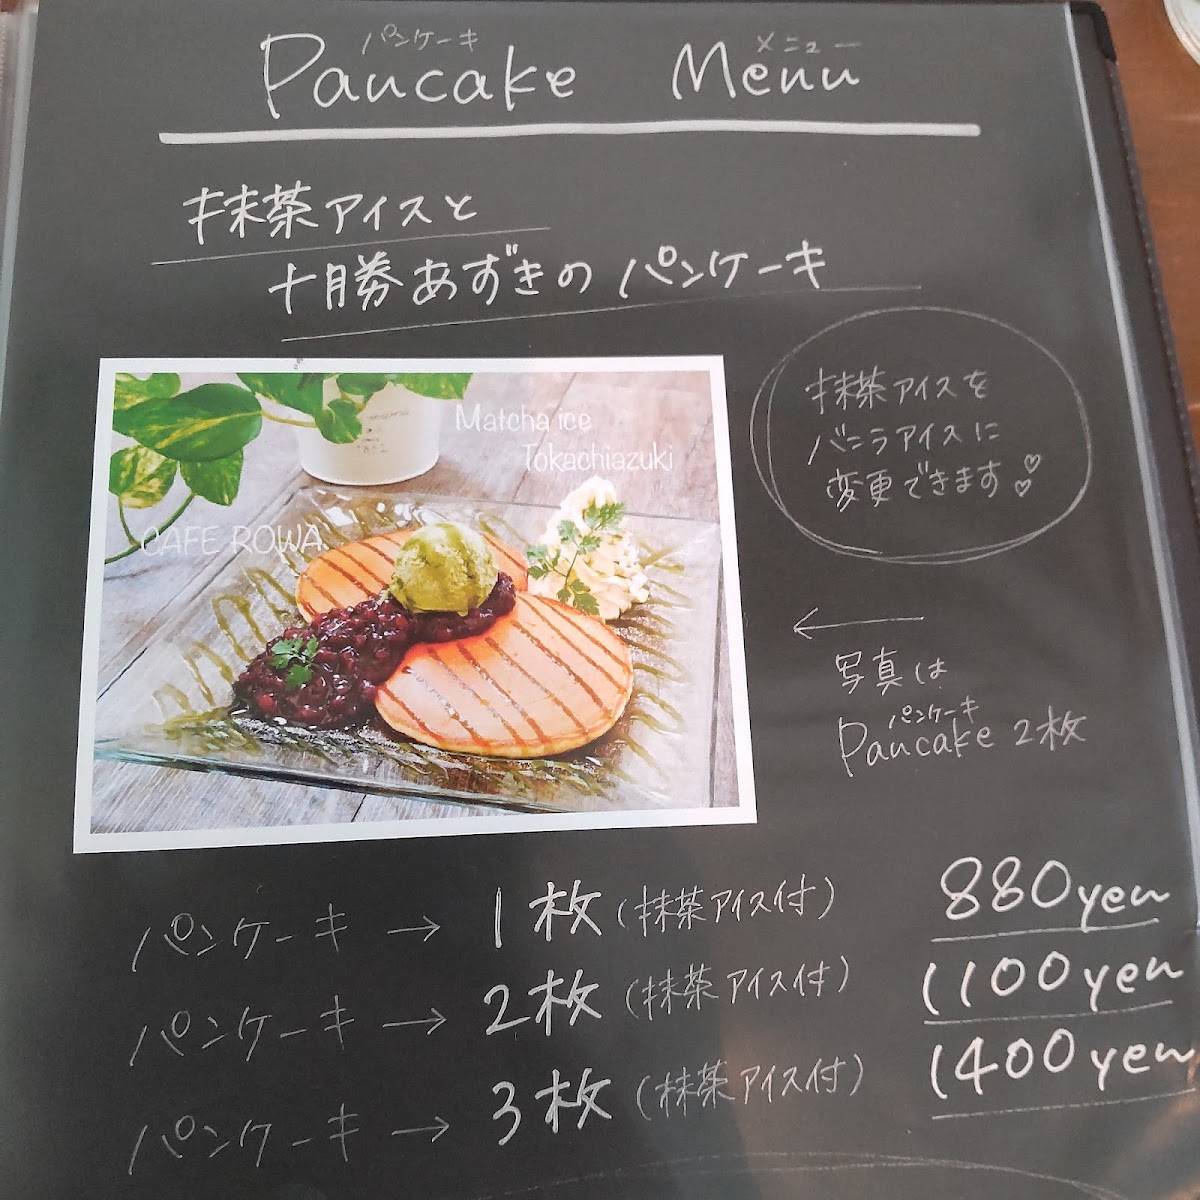 パンケーキ メニュー
Pancake Menu
抹茶アイスと
十勝あずきのパンケーキ
Matcha ice
Tokachiazuki
CAFE ROWA
抹茶アイスを
バニラアイスに
変更できます♡♡
←
写真は
パンケーキ
Pancake 2枚
パンケーキ → 1枚(抹茶アイス付) 880yen
パンケーキ → 2枚(抹茶アイス付) 1100yen
パンケーキ → 3枚(抹茶アイス付) 1400yen